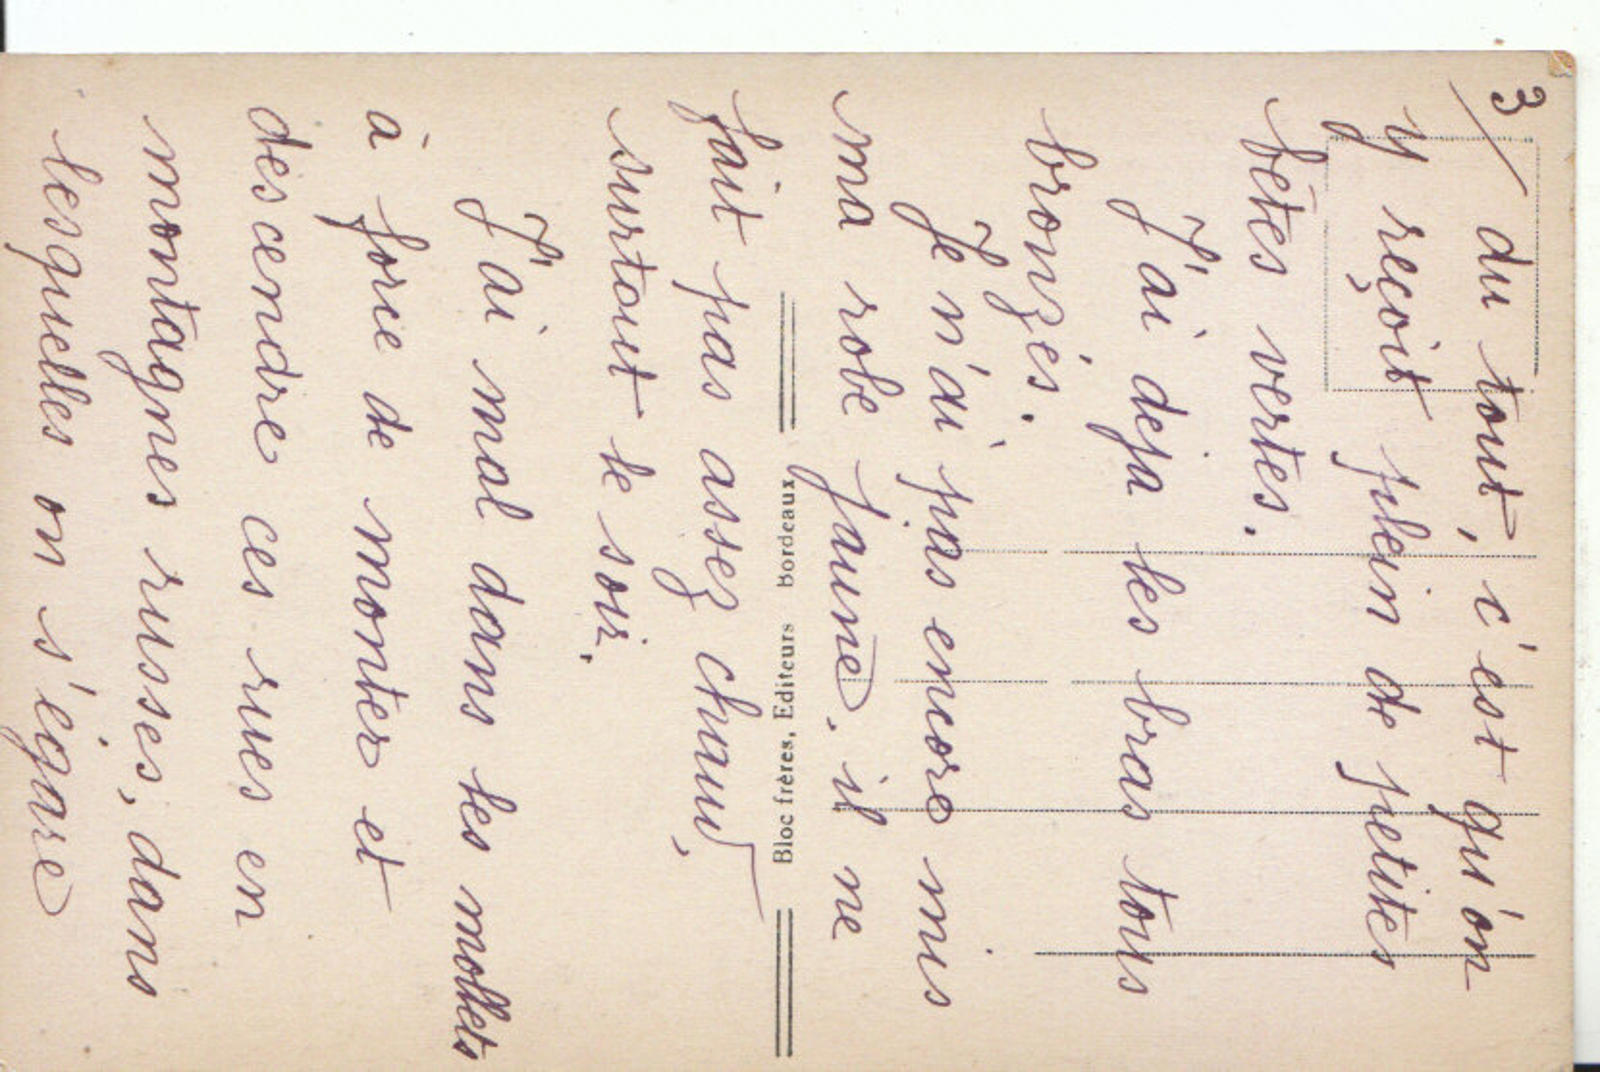 3/ du tout, c'est qu'on
y reçoit plein de petites
bêtes vertes.
J'ai deja les bras tous
bronzés.
Je n'ai pas encore mis
ma robe jaune. il ne
fait pas assez chaud,
surtout le soir.
J'ai mal dans les mollets
à force de monter et
descendre ces rues en
montagnes russes, dans
lesquelles on s'égare
Bloc frères, Editeurs Bordeaux